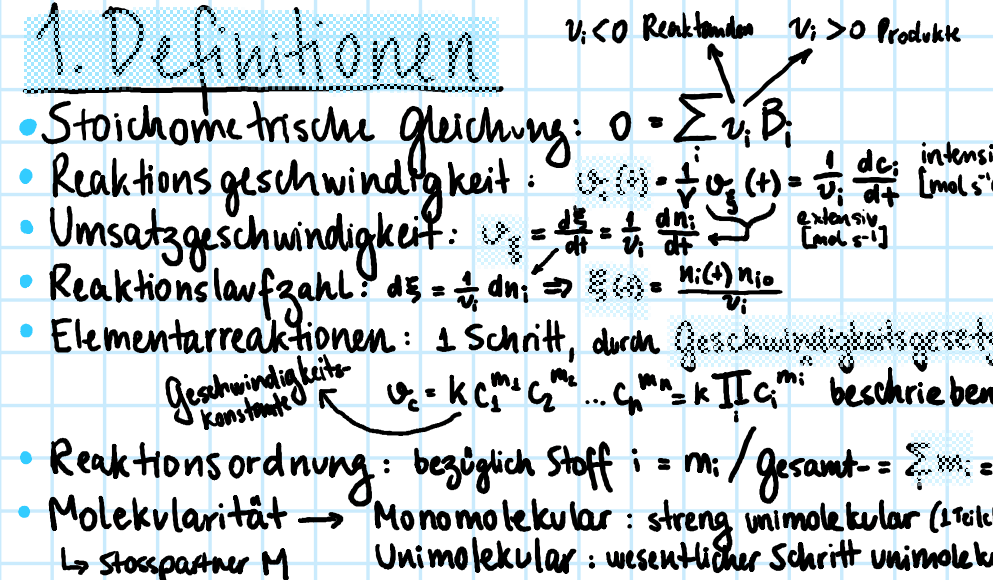 ν_i < 0 Reaktanden ν_i > 0 Produkte
1. Definitionen
• Stoichometrische Gleichung: 0 = ∑_i ν_i B_i
• Reaktionsgeschwindigkeit: v_c(t) = 1/V v_ξ(t) = 1/ν_i dc_i/dt intensi
[mol s⁻¹
extensiv
[mol s⁻¹]
• Umsatzgeschwindigkeit: v_ξ = dξ/dt = 1/ν_i dn_i/dt
• Reaktionslaufzahl: dξ = 1/ν_i dn_i ⇒ ξ(t) = n_i(t) n_i0 / ν_i
• Elementarreaktionen: 1 Schritt, durch Geschwindigkeitsgesetz
Geschwindigkeits-
konstante
v_c = k c_1^m_1 c_2^m_2 ... c_n^m_n = k ∏_i c_i^m_i beschrieben
• Reaktionsordnung: bezüglich Stoff i = m_i / Gesamt- = ∑_i m_i =
• Molekularität → Monomolekular: streng unimolekular (1 Teilc
↳ Stosspartner M Unimolekular: wesentlicher Schritt unimolek